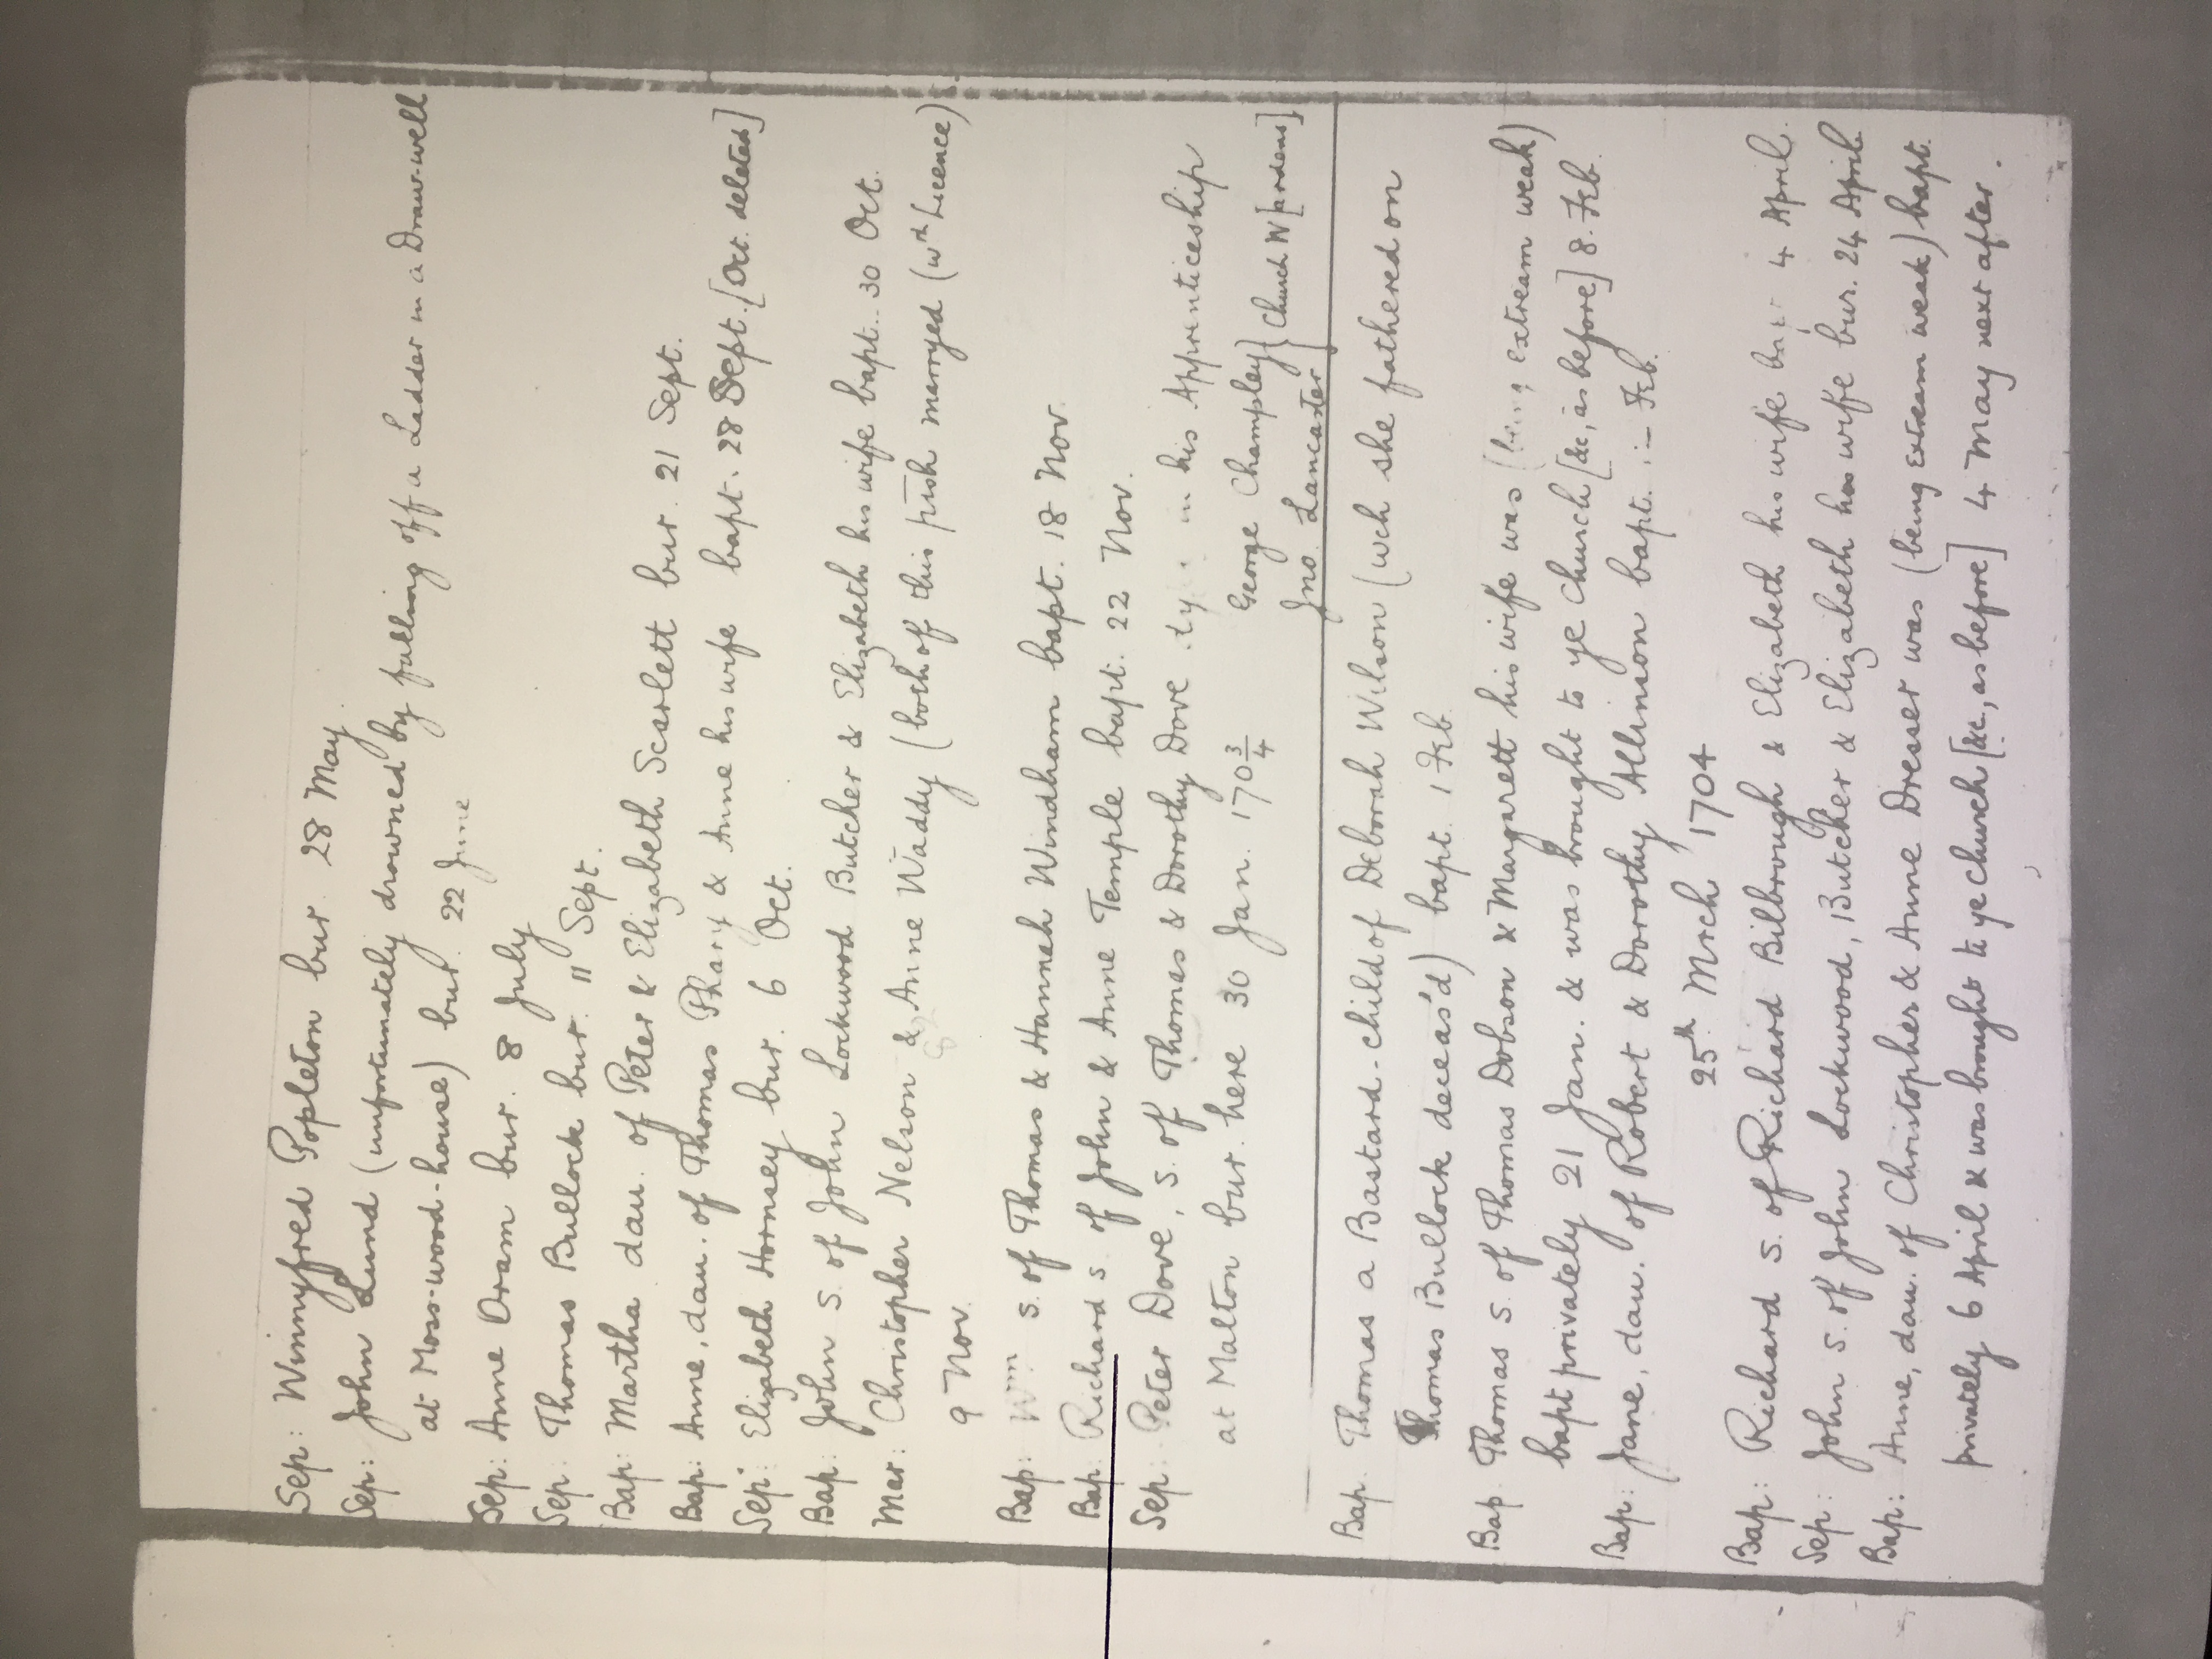 Sep: Winnyfred Popleton bur. 28 May.
Sep: John Lund (unfortunately drowned by falling off a Ladder in a Draw-well
at Moss-wood-house) bur. 22 June
Sep: Anne Oram bur. 8 July
Sep: Thomas Bullock bur. 11 Sept.
Bap: Martha dau. of Peter & Elizabeth Scarlett bur. 21 Sept.
Bap: Anne, dau. of Thomas Phary & Anne his wife bapt. 28 Sept. [Oct. deleted]
Sep: Elizabeth Hornsey bur. 6 Oct.
Bap: John s. of John Lockwood Butcher & Elizabeth his wife bapt. 30 Oct.
Mar: Christopher Nelson & Anne Waddy (both of this pish marryed (wth Licence)
9 Nov.
Bap: Wm s. of Thomas & Hannah Windham bapt. 18 Nov.
Bap: Richard s. of John & Anne Temple bapt. 22 Nov.
Sep: Peter Dove, s. of Thomas & Dorothy Dove in his Apprenticeship
at Malton bur. here 30 Jan. 170¾ George Champley } Church W[ardens]
Jno. Lancaster
Bap. Thomas a Bastard-child of Deborah Wilson (wch she fathered on
Thomas Bullock deceas'd) bapt. 1 Feb.
Bap. Thomas s. of Thomas Dobson & Margarett his wife was (being extream weak)
bapt privately 21 Jan. & was brought to ye Church [&c, as before] 8. Feb.
Bap: Jane, dau. of Robert & Dorothy Allinson bapt. :- Feb.
25th March 1704
Bap: Richard s. of Richard Bilbrough & Elizabeth his wife bapt 4 April.
Sep: John s. of John Lockwood, Butcher & Elizabeth his wife bur. 24 April.
Bap: Anne, dau. of Christopher & Anne Dresser was (being extream weak) bapt.
privately 6 April & was brought to ye church [&c., as before] 4 May next after.